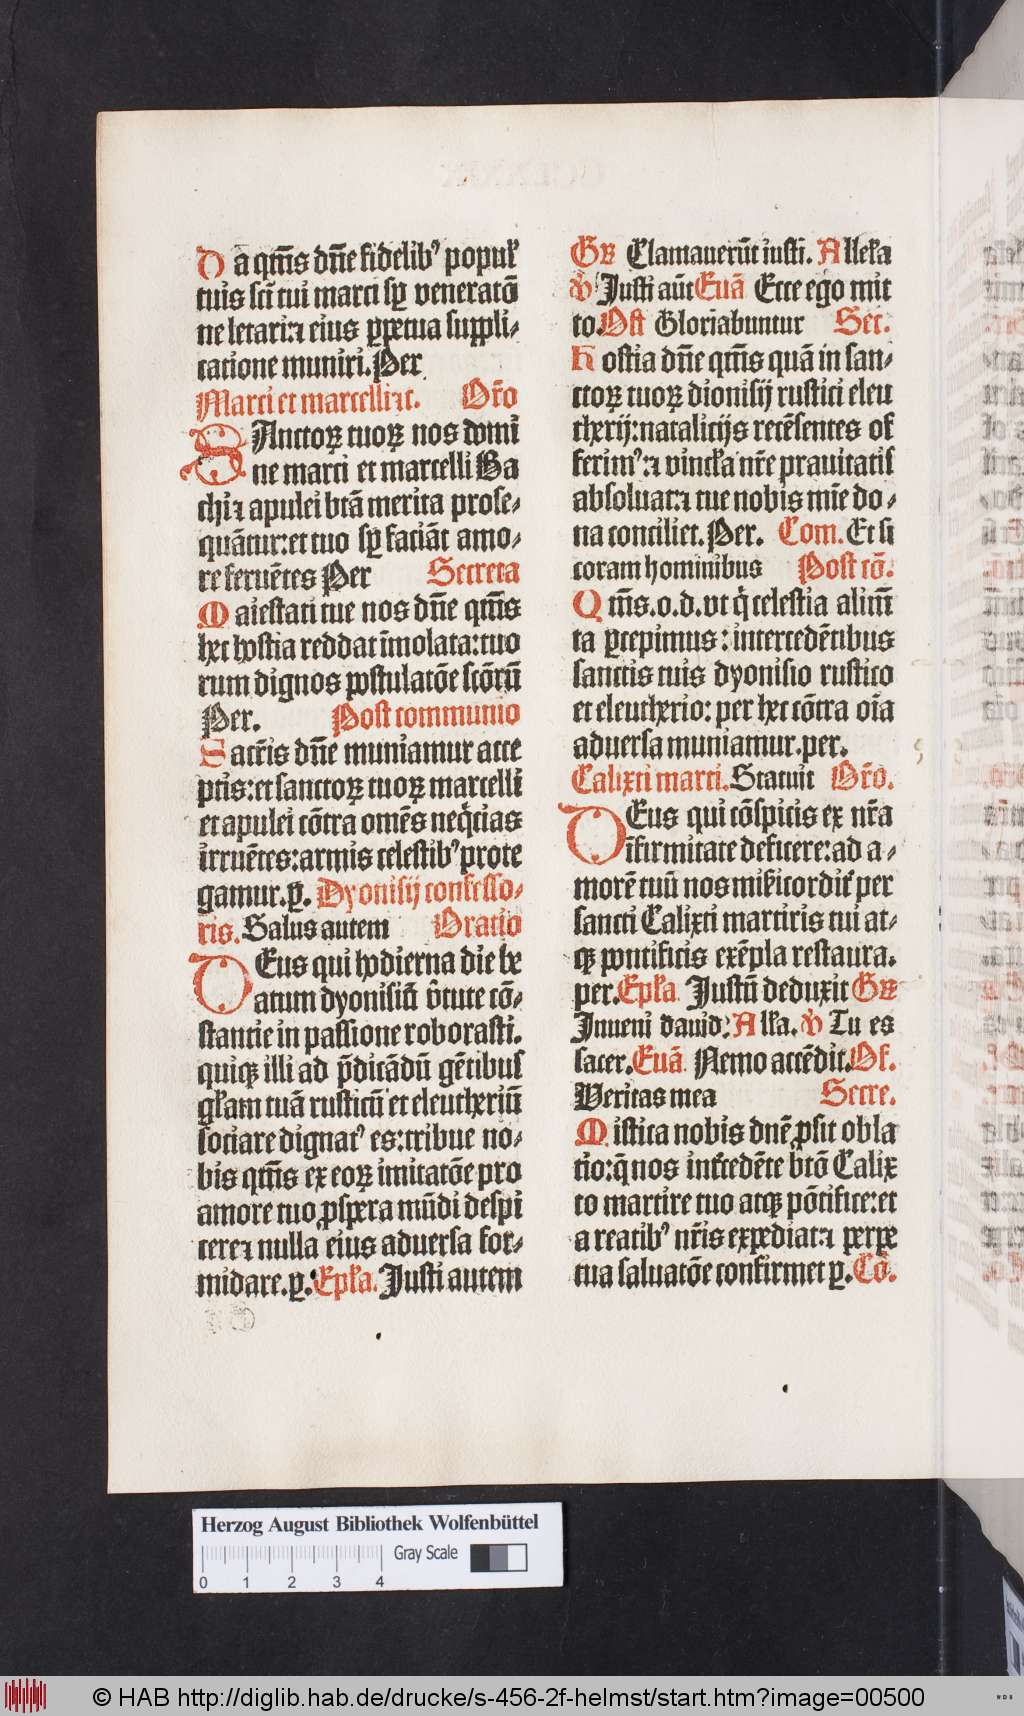 Da qm̄s dn̄e fidelibꝰ popul'
tuis scī tui marci sꝑ veneratōı̄
ne letari:⁊ eius ꝑpetua suppli-
catione muniri.Per
Marci et marcelli⁊c. Or̄o
SAnctoꝝ tuoꝝ nos domi
ne marci et marcelli Ba
chi⁊ apulei btā merita prose-
quāctur:et tuo sꝑ faciāt amo-
re feruētes Per Secreta
Maiestati tue nos dn̄e qm̄s
hec hostia reddat īmolata:tuo
rum dignos postulatōe scōrū
Per. Post communio
Sacr̄is dn̄e muniamur acce
ptis:et sanctoꝝ tuoꝝ marcelli
et apulei cōtra omēs neq̄cias
irruētes:armis celestibꝰ prote
gamur.ꝑ. Dyonisij confesso-
ris. Salus autem Oratio
DEus qui hodierna die be
atum dyonisiū v̄tute cō-
stantie in passione roborasti.
quiqꝫ illi ad p̄dicādū gētibus
gl'am tuā rusticū et eleutheriū
sociare dignatꝰ es:tribue no-
bis qm̄s ex eoꝝ imitatōe pro
amore tuo ꝓspera mūdi despi
cere⁊ nulla eius aduersa for-
midare.ꝑ. Epl'a. Justi autem
Gꝛ Clamauerūt iusti. Allel'a
℣ Justi aūt Euā Ecce ego mit
to. Off Gloriabuntur Sec.
Hostia dn̄e qm̄s quā in san-
ctoꝝ tuoꝝ dionisij rustici eleu
therij:natalicijs recēsentes of
ferimꝰ:⁊ vincl'a nr̄e prauitatis
absoluat:⁊ tue nobis mīe do-
na conciliet.Per. Com. Et si
coram hominibus Post cō.
Qm̄s.o.d.vt q̄ celestia alimē
ta ꝑcepimus: intercedētibus
sanctis tuis dyonisio rustico
et eleutherio: per hec cōtra oīa
aduersa muniamur.per.
Calixti marti. Statuit Or̄o.
DEus qui cōspicis ex nr̄a
īfirmitate deficere:ad a-
morē tuū nos mīcorditer per
sancti Calixti martiris tui at-
qꝫ pontificis exēpla restaura.
per.Epl'a. Justū deduxit Gꝛ
Jnueni dauid. All'a. ℣ Tu es
sacer. Euā. Nemo accēdit. Of.
Veritas mea Secre.
Mistica nobis dn̄e ꝓsit obla
tio:q̄ nos int̄cedēte btō Calix
to martire tuo atqꝫ pōtifice:et
a reatibꝰ nr̄is expediat:⁊ perpe
tua saluatōe confirmet ꝑ. Cō.
Herzog August Bibliothek Wolfenbüttel
Gray Scale
0 1 2 3 4
© HAB http://diglib.hab.de/drucke/s-456-2f-helmst/start.htm?image=00500